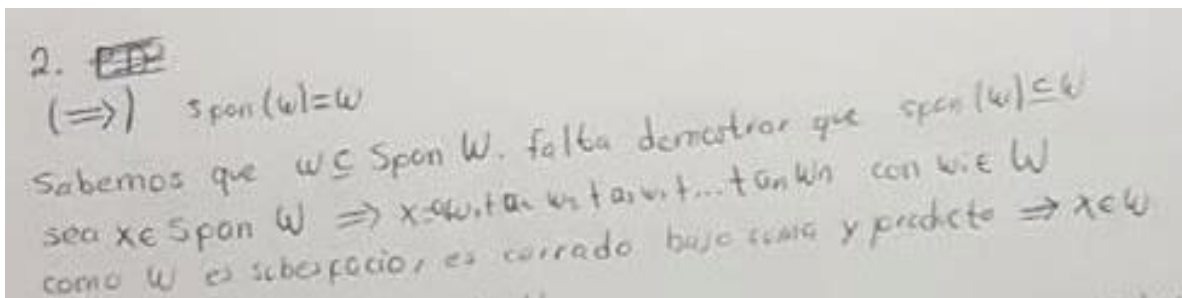 2.
(⇒) Span (w)=w
Sabemos que w ⊆ Span W. falta demostrar que span (w) ⊆ W
sea x∈ Span W ⇒ x=a₁w₁+a₂ w₂+a₃w₃+...+an Wn con wi∈ W
como W es subespacio, es cerrado bajo suma y producto ⇒ x∈W